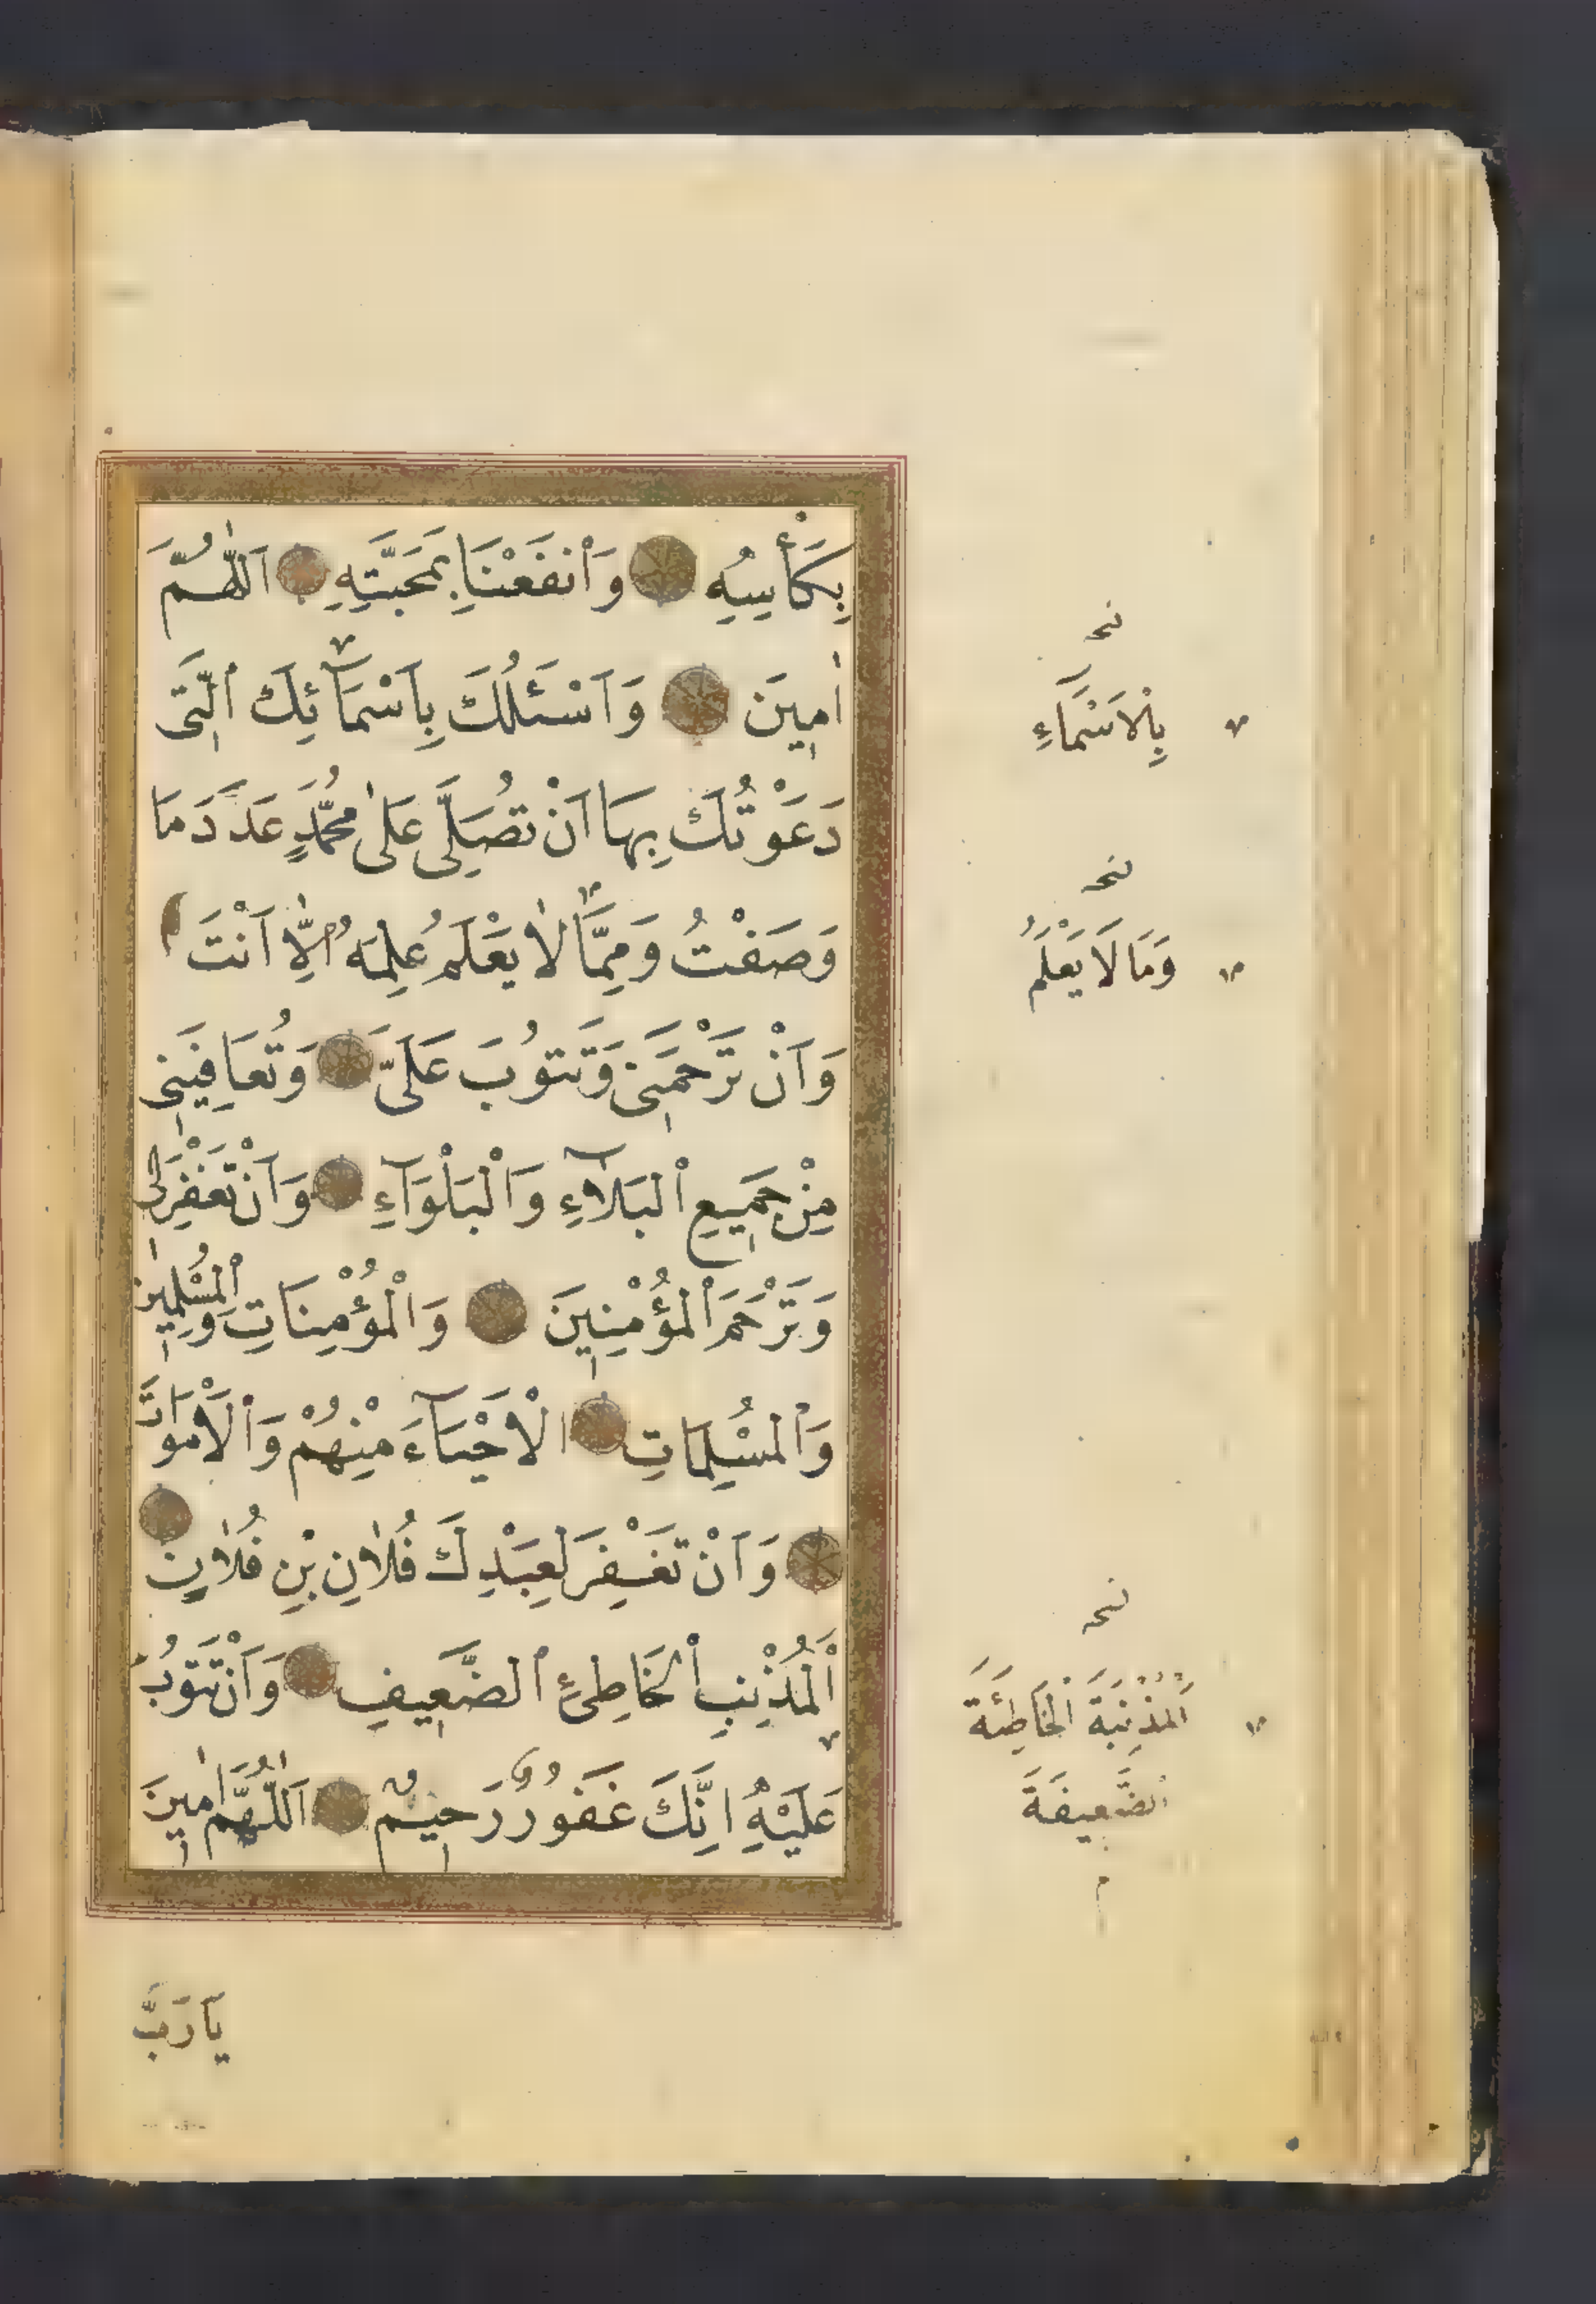 بِكَأْسِهِ وَانْفَعْنَا بِمَحَبَّتِهِ اَللّٰهُمَّ
اٰمِينَ وَاَسْئَلُكَ بِاَسْمَآئِكَ الَّتِى
دَعَوْتُكَ بِهَا اَنْ تُصَلِّىَ عَلٰى مُحَمَّدٍ عَدَدَ مَا
وَصَفْتُ وَمِمَّا لَا يَعْلَمُ عِلْمَهُ اِلَّا اَنْتَ
وَاَنْ تَرْحَمَنِى وَتَتُوبَ عَلَىَّ وَتُعَافِيَنِى
مِنْ جَمِيعِ الْبَلَآءِ وَالْبَلْوَآءِ وَاَنْ تَغْفِرَ لِى
وَتَرْحَمَ الْمُؤْمِنِينَ وَالْمُؤْمِنَاتِ وَالْمُسْلِمِينَ
وَالْمُسْلِمَاتِ الْاَحْيَآءَ مِنْهُمْ وَالْاَمْوَاتَ
وَاَنْ تَغْفِرَ لِعَبْدِكَ فُلَانِ بْنِ فُلَانٍ
اَلْمُذْنِبِ الْخَاطِئِ الضَّعِيفِ وَاَنْ تَتُوبَ
عَلَيْهِ اِنَّكَ غَفُورٌ رَحِيمٌ اَللّٰهُمَّ اٰمِينَ
يَا رَبَّ
بِالْاَسْمَآءِ
وَمَا لَا يَعْلَمُ
اَلْمُذْنِبَةَ الْخَاطِئَةَ
الضَّعِيفَةَ